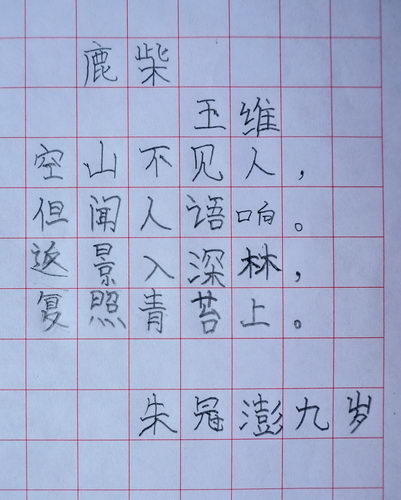 鹿柴
玉维
空山不见人，
但闻人语响。
返景入深林，
复照青苔上。
朱冠澎九岁